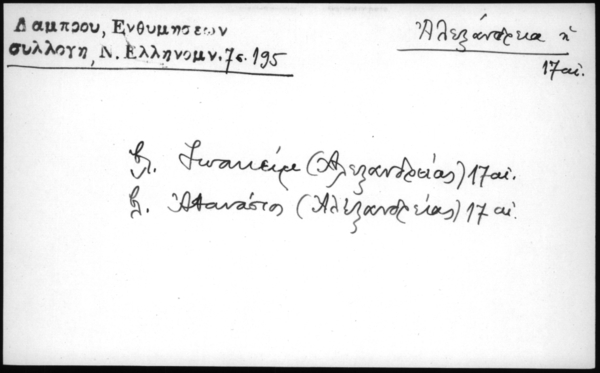 Λαμπρου, Ενθυμησεων
συλλογη, Ν. Ελληνομν. 7ς. 195
Ἀλεξάνδρεια ἡ
17 αἰ.
βλ. Ἰωακείμ (Ἀλεξανδρείας) 17 αἰ.
βλ. Ἀθανάσιος (Ἀλεξανδρείας) 17 αἰ.